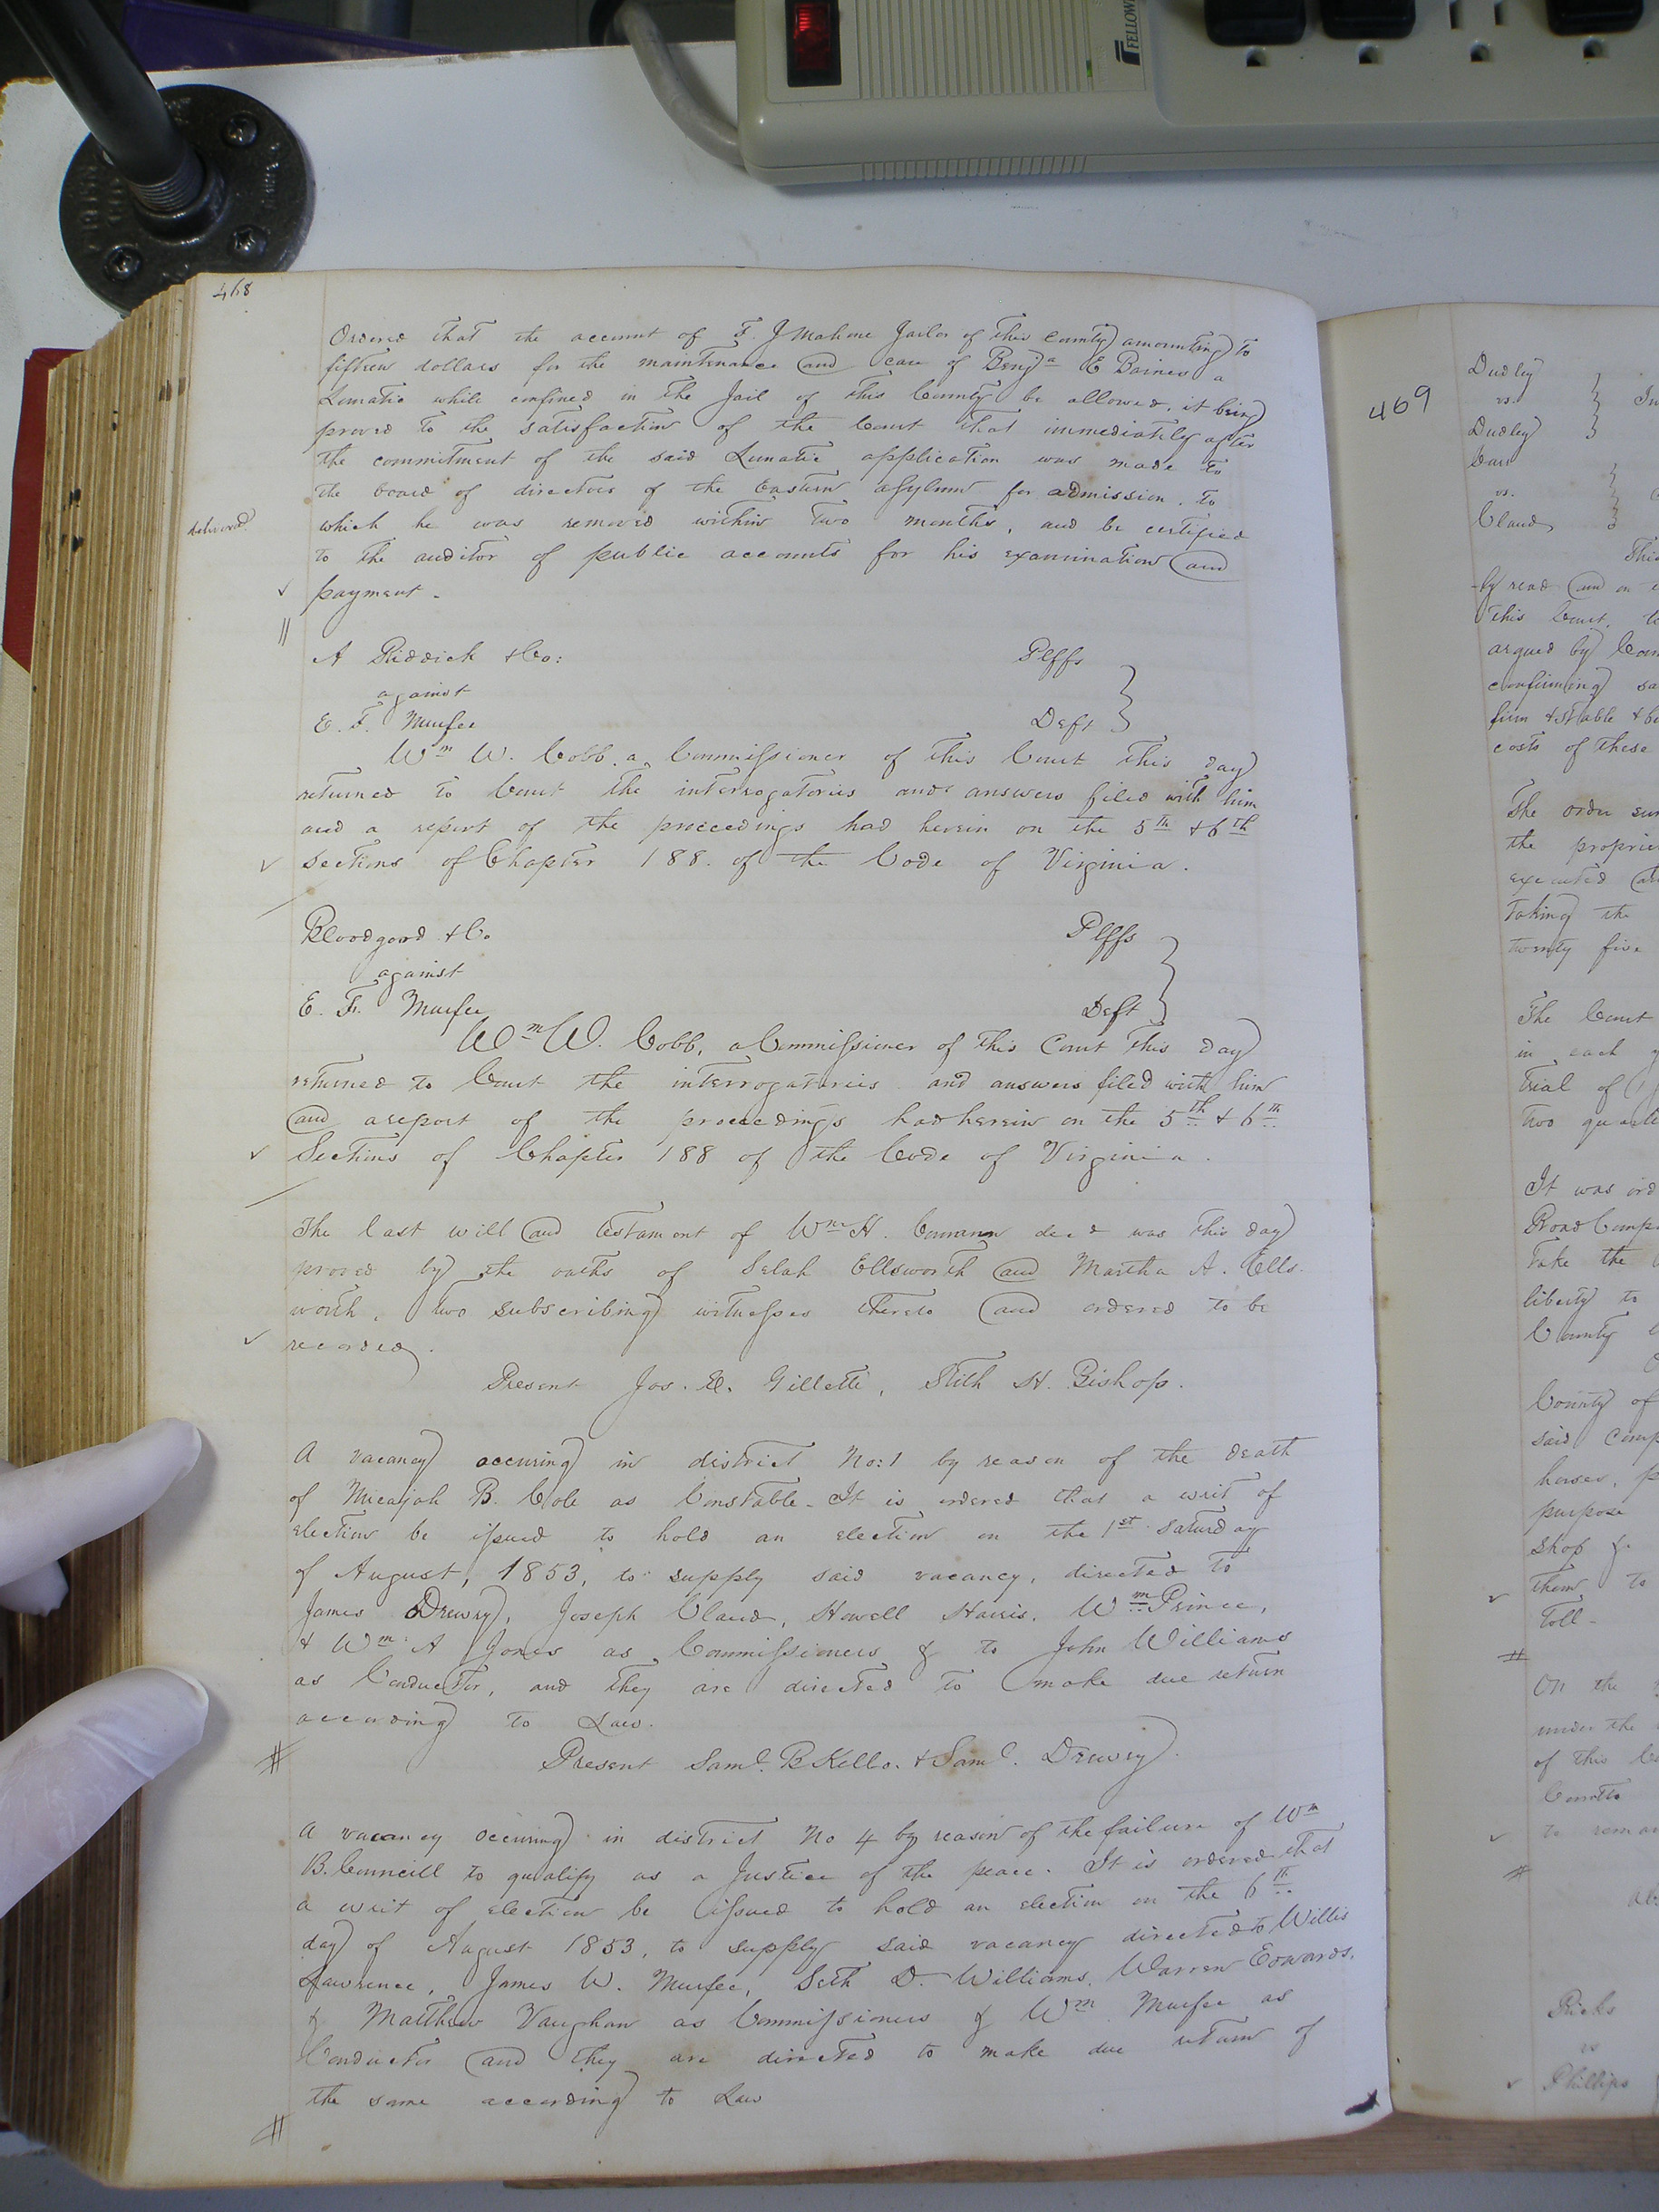 FELLOWE
468
Ordered that the account of F. J Mahone Jailor of this County amounting to
fifteen dollars for the maintenance and care of Benja E Baines a
Lunatic while confined in the Jail of this County be allowed, it being
proved to the satisfaction of the Court that immediately after
the commitment of the said Lunatic application was made to
the board of directors of the Eastern asylum for admission, to
which he was removed within two months, and be certified
to the auditor of public accounts for his examination and
payment.
A Riddick & Co: Plffs
against
E. F. Murfee Deft
Wm W. Cobb, a Commissioner of this Court this day
returned to Court the interrogatories and answers filed with him
and a report of the proceedings had herein on the 5th & 6th
Sections of Chapter 188. of the Code of Virginia.
Bloodgood & Co Plffs
against
E. F. Murfee Deft
Wm W. Cobb, a Commissioner of this Court this day
returned to Court the interrogatories and answers filed with him
and a report of the proceedings had herein on the 5th & 6th
Sections of Chapter 188 of the Code of Virginia.
The last will and testament of Wm H. decd was this day
proved by the oaths of Selah Ellsworth and Martha A. Ells-
worth, two subscribing witnesses thereto and ordered to be
recorded.
Present Jos. E. Gillette, Stith H. Bishop.
A vacancy occuring in district No: 1 by reason of the death
of Micajah B. Cole as Constable. It is ordered that a writ of
election be issued to hold an election on the 1st Saturday
of August, 1853, to supply said vacancy, directed to
James Drewry, Joseph Claud, Howell Harris, Wm Prince,
& Wm A Jones as Commissioners & to John Williams
as Conductor, and they are directed to make due return
according to Law.
Present Saml. B Kello. & Saml. Drewry.
A vacancy occuring in district No 4 by reason of the failure of Wm
B. Councill to qualify as a Justice of the peace. It is ordered that
a writ of election be issued to hold an election on the 6th
day of August 1853, to supply said vacancy directed to Willis
Lawrence, James W. Murfee, Seth D. Williams, Warren Edwards,
& Matthew Vaughan as Commissioners & Wm Murfee as
Conductor and they are directed to make due return of
the same according to Law
469
Dudley
vs.
Dudley
vs.
Claud
This
-ly read and on
this Court,
argued by
confirming
firm & stable
costs of these
The order
the
executed
taking the
twenty five
The Court
in each
trial of
two
It was
Road
take the
liberty to
County
County of
said
horses,
purpose
shop &
them to
Toll -
On the
under the
of this
to
Ricks
vs
Phillips